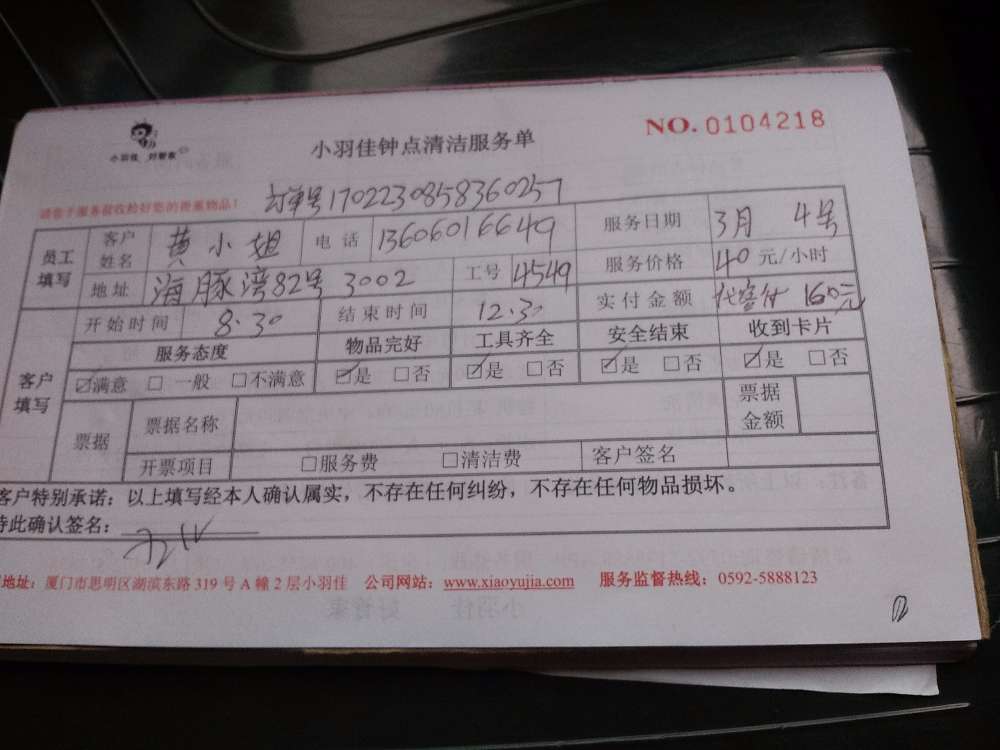 小羽佳 好管家
小羽佳钟点清洁服务单
NO. 0104218
订单号1702230858360257
员工填写 客户姓名 黄小姐 电话 13606016649 服务日期 3月 4号
地址 海豚湾82号 3002 工号 4549 服务价格 40 元/小时
客户填写 开始时间 8:30 结束时间 12:30 实付金额 160元
服务态度 物品完好 工具齐全 安全结束 收到卡片
☑满意 □ 一般 □不满意 ☑是 □否 ☑是 □否 ☑是 □否 ☑是 □否
票据 票据名称 票据金额
开票项目 □服务费 □清洁费 客户签名
客户特别承诺：以上填写经本人确认属实，不存在任何纠纷，不存在任何物品损坏。
特此确认签名：
地址：厦门市思明区湖滨东路 319 号 A 幢 2 层小羽佳 公司网站：www.xiaoyujia.com 服务监督热线：0592-5888123